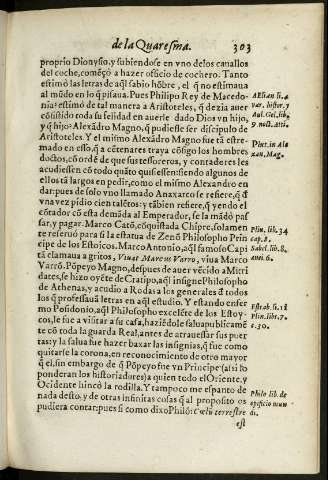 de la Quaresma. 303
proprio Dionysio, y subiendose en vno de los cauallos
del coche, comēçò a hazer officio de cochero. Tanto
estimò las letras de aq̃l sabio hõbre, el q̃ no estimaua
al mūdo en lo q̃ pisaua. Pues Philipo Rey de Macedo-
nia: estimò de tal manera a Aristoteles, q̃ dezia auer
cõsistido toda su felidad en auerle dado Dios vn hijo,
y q̃ hijo: Alexãdro Magno, q̃ pudiesse ser discipulo de
Aristoteles. Y el mismo Alexãdro Magno fue tã estre-
mado en esso, q̃ a cõtenares traya cõsigo los hombres
doctos, cõ ordē de que sus tesoreros, y contaderes les
acudiessen cõ todo quãto quisiessen: siendo algunos de
ellos tã largos en pedir, como el mismo Alexandro en
dar: pues de solo vno llamado Anaxarco se refiere, q̃ d̃
vna vez pidio cien talētos: y tābien refiere, q̃ yendo el
cõtador cõ esta demāda al Emperador, se la mādò pas
sar, y pagar. Marco Catõ, cõquistada Chipre, solamen
te reseruò para si la estatua de Zenõ Philosopho Prin
cipe de los Estoicos. Marco Antonio, aq̃l famoso Capi
tã clamaua a gritos, Viuat Marcus Varro, viua Marco
Varrõ. Põpeyo Magno, despues de auer vēcido a Mitri
dates, se hizo oyēte de Cratipo, aq̃l insigne Philosopho
de Athenas, y acudio a Rodas a los generales d̃ todos
los q̃ professauã letras en aq̃l estudio. Y estando enfer
mo Posidonio, aq̃l Philosopho excelēte de los Estoy-
cos, le fue a visitar a su casa, haziēdole salua publicamē
te cõ toda la guarda Real, antes de atrauessar sus puer
tas: y la salua fue hazer baxar las insignias, q̃ fue como
quitarse la corona, en reconocimiento de otro mayor
q̃ el, sin embargo de q̃ Põpeyo fue vn Principe (asi lo
ponderan los historiadores) a quien todo el Oriente, y
Ocidente hincò la rodilla. Y tampoco me espanto de
nada desto, y de otras infinitas cosas q̃ al proposito os
pudiera contar: pues si como dixo Philõ: Cœlũ terrestre
est
AElian li. 4
var. histor. y
Aul. Gel. lib.
9. noct. Atti.
Plut. in Ale
xan. Mag.
Plin. lib. 34
cap. 8.
Sabel. lib. 8.
Estrab. li. 11
Plin. lib. 7.
c. 30.
Philo lib. de
opificio mun
di.